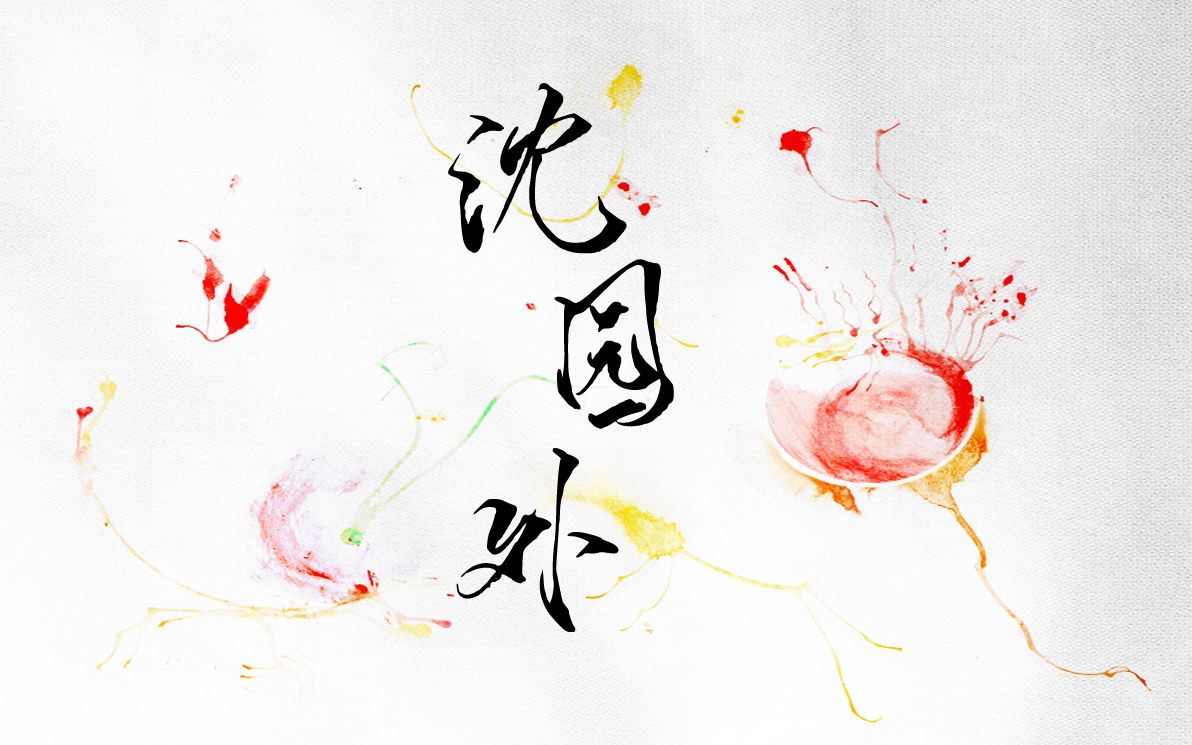 沈园外